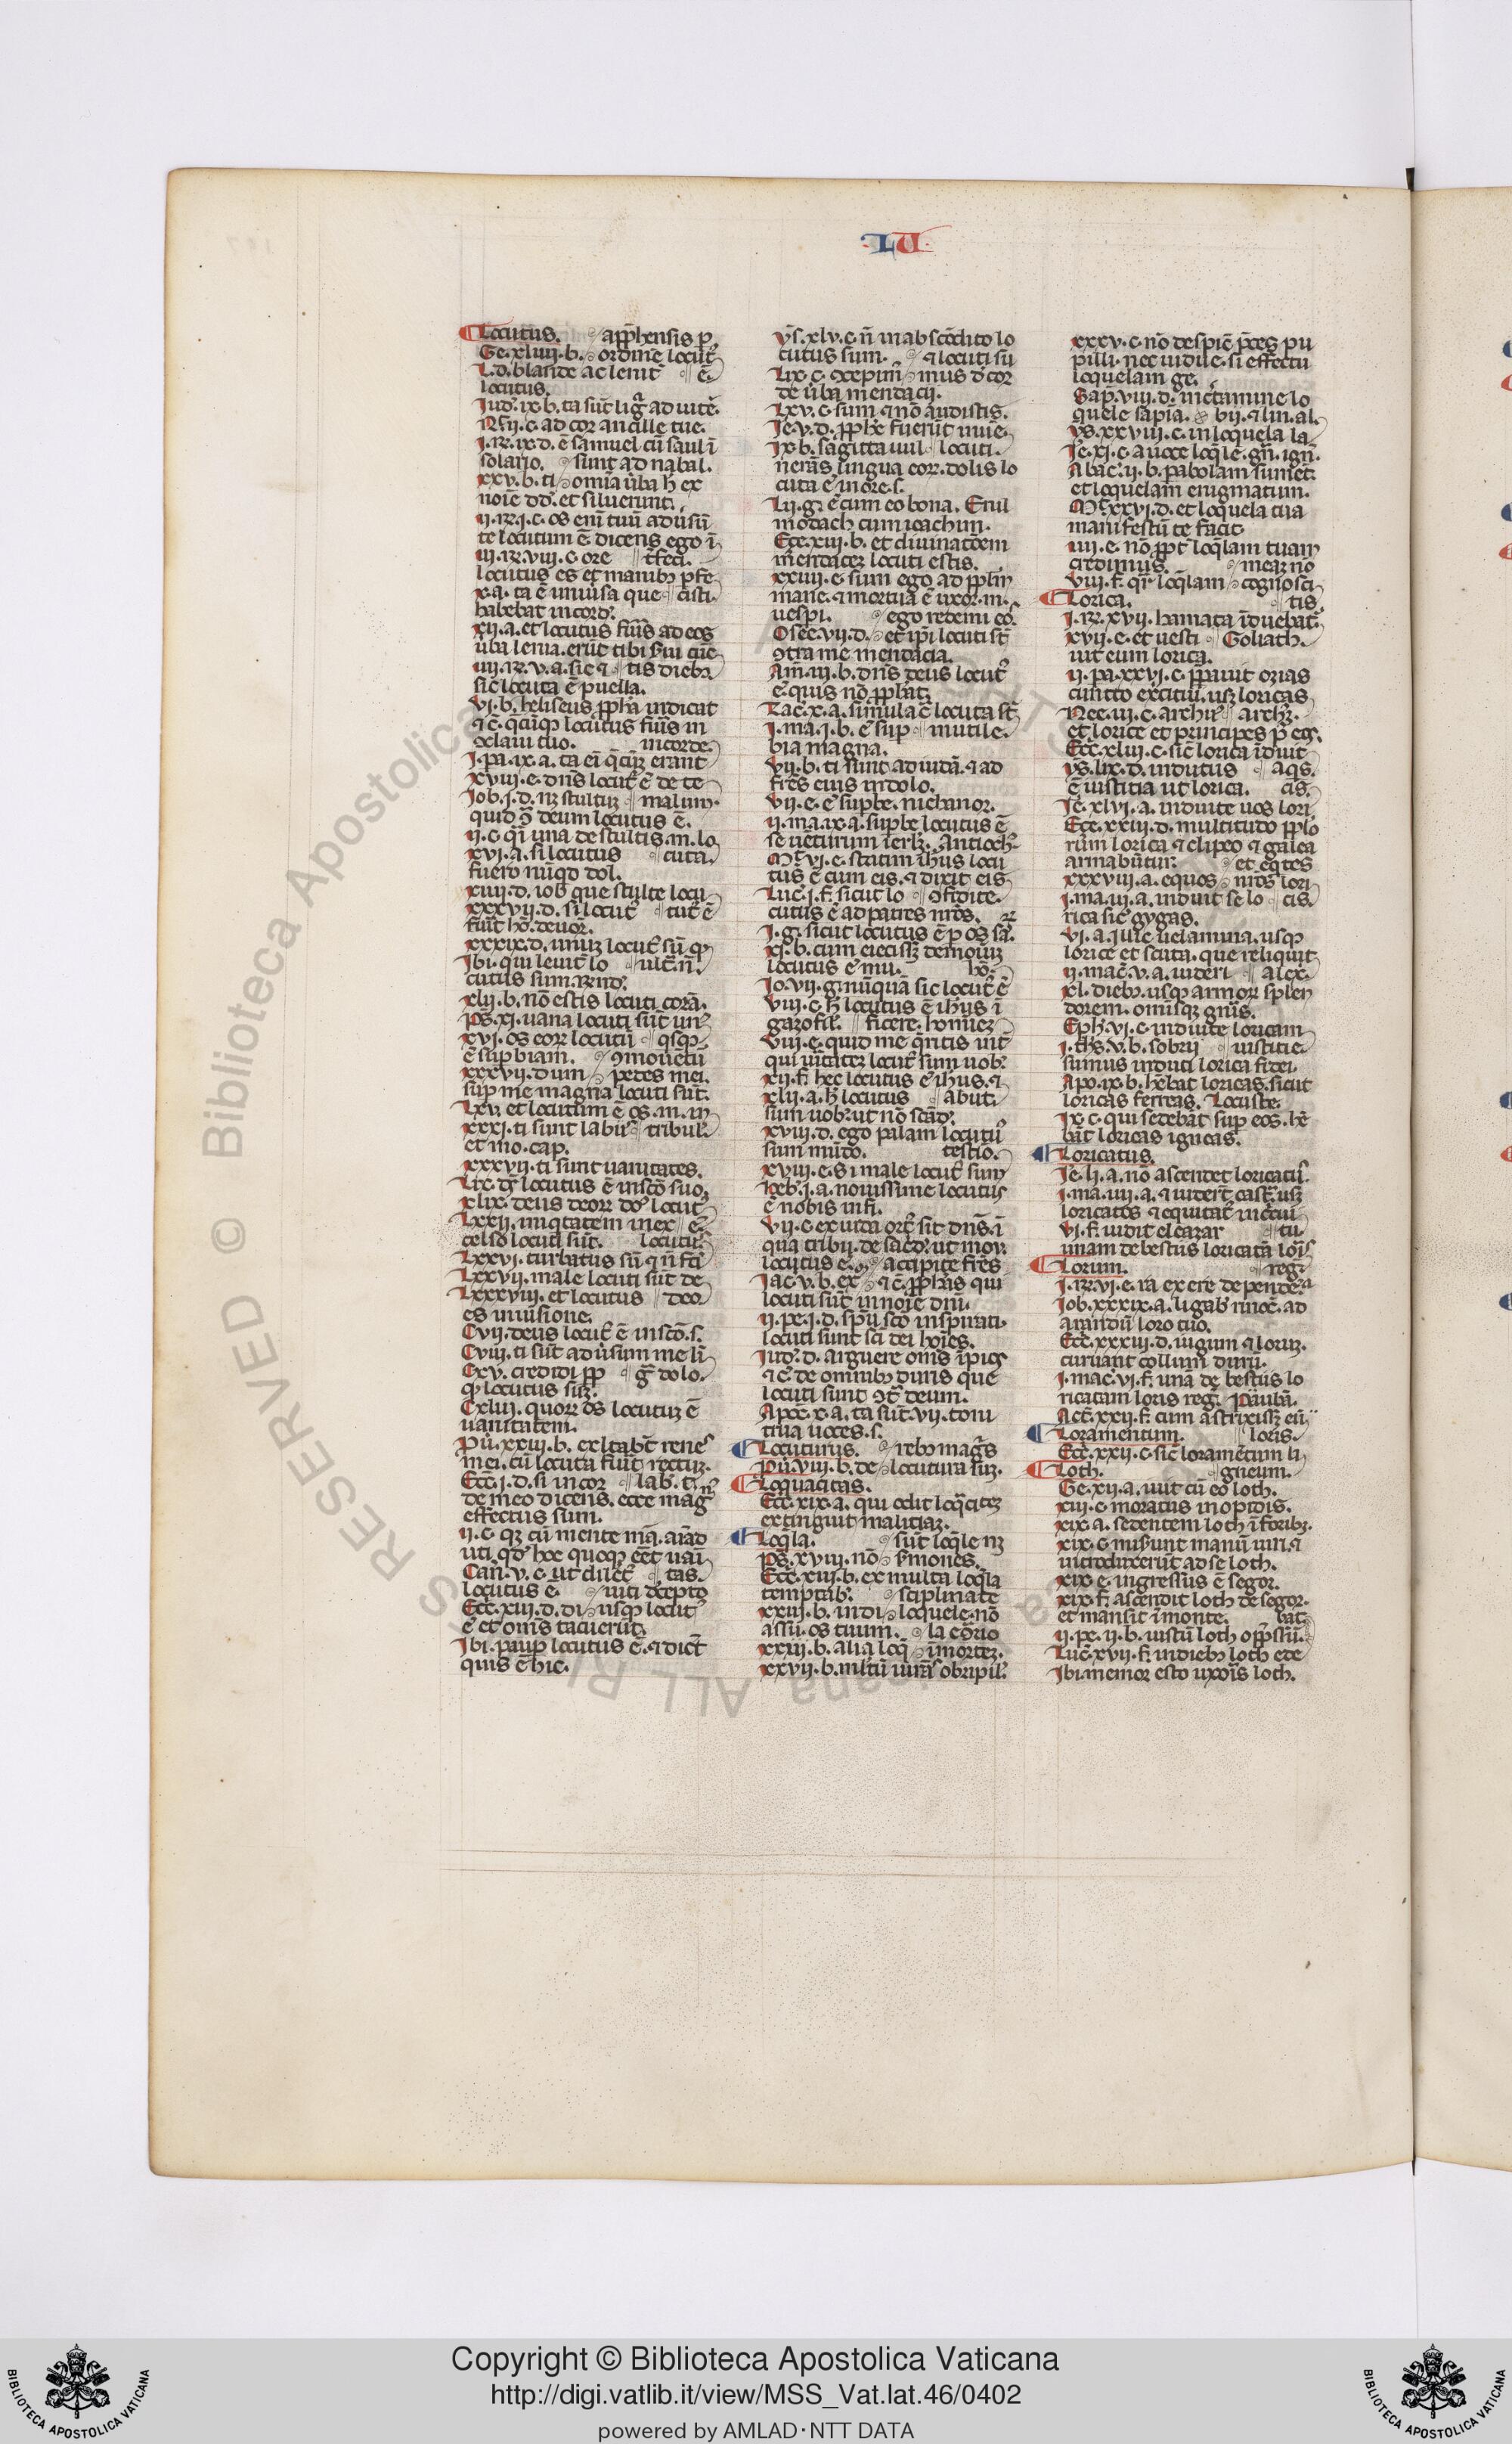 LU
Locutus. app̄hensis p
Ge. xliiii. b. ordine locut᷒
L. d. blande ac lenit᷒ ē
locutus.
Iud᷒. ix. b. ta sūt
ii. c. ad cor ancille tue.
i. R᷒. ix. d. ē samuel cū saul ī
solario. sunt ad nabal.
xxv. b. ti omīa u̇ba h̄ ex
noīe dd᷒. et siluerunt.
ii. R᷒. i. c. os enī tuū adūsū
te locutum ē dicens ego ī
iii. R᷒. viii. c. ore t̄feci.
locutus es et manibꝫ pfe
x. a. ta ē uniūsa que cisti.
habebat in cord᷒.
xii. a. et locutus fūis ad eos
u̇ba lenia. erūt tibi s̄ui cūc
iiii. R᷒. v. a. sic ⁊ tis diebꝫ
sic locuta ē puella.
vi. b. heliseus ppħa indicat
⁊ c̄. q̄cūqꝫ locutus fūis in
oclaui tuo. in corde.
I. pa. ix. a. ta eī q̄cūqꝫ erant
xviii. e. dn̄s locut᷒ ē de te
Iob. i. d. nꝫ stultuꝫ malum.
quid deum locutus ē.
ii. c. q̄i una de stultis. m. lo
xvi. a. si locutus cuta.
fuero nūqd dol.
xiiii. d. iob que stulte locu
xxxvii. d. si locut᷒ tut᷒ ē
fūit hō. deuor᷒.
xxxix. d. unuꝫ locut᷒ sū qꝫ
Ibi. qui leuit᷒ lo ult̄. n̄.
cutus sum. R̄nd᷒.
xlii. b. nō estis locuti corā.
Ps̄. xi. uana locuti sūt un᷒
xvi. os eorꝝ locutū qsqꝫ
ē supbiam. ꝯmouētū
xxxvii. dum pedes mei.
sup me magna locuti sūt.
Lxv. et locutum ē os. m. in
xxxi. ti sunt labii᷒ tribul᷒.
et mo. cap.
xxxvii. ti sunt uanitates.
Lix. ds̄ locutus ē in scō suo.
xlix. deus deorꝝ do᷒ locut᷒
Lxxii. iniqtatem in ex ē.
celso locuti sūt. locutu᷒
Lxxvi. turbatus sū ⁊ n̄
Lxxvii. male locuti sūt de
Lxxxviii. et locutus deo
es in uisione.
Cvii. deus locut᷒ ē in scō. s.
Cviii. ti sūt adūsum me li
Cxv. credidi pp g̃ dolo.
qꝫ locutus suꝫ.
Cxliii. quorꝝ os locutuꝫ ē
uanitatem.
Pū. xxiii. b. exltabt̄ renes
mei. cū locuta fūit rectuꝫ.
Ecc̄. i. d. si in cor
de meo dicens. ecce mag
effectus sum.
ii. c. qꝫ cū mente mā. aīad
uti. qd᷒ hoc quoqꝫ eēt uāi
Can᷒. v. c. ut dilect᷒ tas.
locutus ē. uiti decepto
Ecc̄. xiii. d. di usqꝫ locut᷒
ē et om̄s tacuerūt.
Ibi. paup locutus ē. ⁊ dict᷒
quis ē hic.
ys̄. xlv. c. n̄ in abscōdito lo
cutus sum. ⁊ locuti sū
Lix. c. mus d᷒ cor
de u̇ba mendacii.
Lxv. c. sum ⁊ nō audistis.
Ie. v. d. ppħe fuerūt
ix. b. sagitta uul locuti.
nerās lingua eorꝝ. dolis lo
cuta ē in ore. s.
Lii. g. ē cum eo bona. Euil
modach cum ioachim.
Eze. xiii. b. et diuinatōem
mendacez locuti estis.
xxiiii. e. sum ego ad pplm
mane. ⁊ mortua ē uxor. m.
uespi. ego redemi eo᷒.
Osee. vii. d. et ip̄i locuti st̄
ꝯtra me mendacia.
Am̄. iii. b. dn̄s deus locut᷒
ē quis nō ppħat.
Zac̄. x. a. simulac᷒ locuta st̄
I. ma. i. b. ē sup inutile.
bia magna.
vii. b. ti sunt ad iudā. ⁊ ad
fr̄es eius in dolo.
vii. e. ē supbe. nichanor.
ii. ma. ix. a. supbe locutus ē
se uēturum ierlꝫ. Antioch᷒.
Mt᷒. vi. e. statim ih̄us locu
tus ē cum eis. ⁊ dixit eis
Luc̄. i. f. sicut lo ꝯfidite.
cutus ē ad patres nr̄os.
I. g. sicut locutus ē p os sā.
xi. b. cum eiecisꝫ demoīuꝫ
locutus ē mu. hō.
Io. vii. g. nūquā sic locut᷒ ē
viii. c. h̄ locutus ē ih̄us ī
gazofil᷒. ficere. hominez
viii. e. quid me q̄ritis int᷒
qui ūitatez locut᷒ sum uob᷒.
xii. f. hec locutus ē ih̄us. ⁊
xlii. a. h̄ locutus abiit.
sum uob᷒ ut nō scād᷒.
xviii. d. ego palam locutu᷒
sum mūdo. testio.
xviii. e. si male locut᷒ sum
heb᷒. i. a. nouissime locutus
ē nobis in fi.
vii. c. ex iuda ort᷒ sit dn̄s. ī
qua tribu. de sacd᷒. ut moy.
locutus ē. accipite fr̄es
Iac᷒. v. b. ex ⁊ c̄. ppħas qui
locuti sūt in noīe dn̄i.
ii. pe. i. d. sp̄u scō inspirati.
locuti sunt sc̄i dei hoīes.
Iud᷒. d. arguere om̄s īpios
⁊ c̄. de omnibꝫ duris que
locuti sunt ꝯt᷒ deum.
Apoc̄. x. a. ta sūt. vii. toni
trua uoces. s.
Locuturus. rebꝫ mag̃s
Pū. viii. b. de locutura suꝫ.
Loquacitas.
Ecc̄. xix. a. qui odit loq̄citez
extinguit malitiaꝫ.
Loq̄la. sūt loq̄le nꝫ
Ps̄. xviii. nō s̄mones.
Ecc̄. xiii. b. ex multa loq̄la
temptab᷒. sciplinate
xxiii. b. in di loquele nō
assū. os tuum. la cōrio
xxiii. b. alia loq̄ ī mortez.
xxvii. b. ml̄tū iurās obripil᷒.
xxxv. c. nō despic̄ p̄ces pu
pilli. nec uidūe. si effectu
loquelam ge.
Sap̄. viii. d. in c̄tamine lo
quele sapīa.
ys̄. xxviii. c. in loquela la
Ie. xi. c. a uoce loq̄le. gn̄. ign̄.
Abac᷒. ii. b. parabolam sumet.
et loquelam enigmatum.
Mt᷒. xxvi. d. et loquela tua
manifestū te facit.
iiii. e. nō ppt᷒ loq̄lam tuam
credimus. meaꝫ nō
viii. f. q̄r loq̄lam cognosci
Lorica. tis
I. R᷒. xvii. hamata iduebat᷒
xvii. e. et uesti Goliath.
uit eum lorica.
ii. pa. xxvi. c. pparauit ozias
cuncto excitui. usꝫ loricas
Nee. iii. c. archu᷒ archꝫ.
et lorice et principes p᷒ eg.
Ecc̄. xliii. c. sic̄ lorica iduit
ys̄. lix. d. indutus aqs.
ē iustitia ut lorica. cis.
Ie. xlvi. a. induite uos lori
Eze. xxiii. d. multitudo pplo
rum lorica ⁊ clipeo ⁊ galea
armabūtur. et eqtes
xxxviii. a. equos nr̄os lori
I. ma. iii. a. induit se lo cis.
rica sic̄ gygas.
vi. a. ille uelamina. usqꝫ
lorice et scuta. que reliquit
ii. mac᷒. v. a. uideri alex.
xl. diebꝫ. usqꝫ armorꝝ splen
dorem. omisqꝫ gn̄is.
Eph᷒. vi. c. induite loricam
i. ths᷒. v. b. sobrii iustitie.
sumus induti lorica fidei.
Apo. ix. b. hēbat loricas. sicut
loricas ferreas. Locuste.
Ix. c. qui sedebāt sup eos. hē
bāt loricas igneas.
Loricatus.
Ie. li. a. nō ascendet loricatu᷒.
I. ma. iiii. a. ⁊ uidert̄. cast᷒. usꝫ
loricatos ⁊ equitat᷒ in c̄cui
vi. f. uidit eleazar tu
unam de bestiis loricatā lori᷒
Lorum. reg᷒.
I. R᷒. vi. e. ra ex ere depende.
Iob. xxxix. a. ligab᷒ rinoc᷒. ad
arandū loro tuo.
Ecc̄. xxxiii. d. iugum ⁊ loruꝫ.
curuant collum durū.
I. mac᷒. vi. f. unā de bestiis lo
ricatam loris reg᷒.
Act᷒. xxii. f. cum astrixisꝫ eū
Loramentum. loris.
Ecc̄. xxii. c. sic̄ loramētum li
Loth. gneum.
Ge. xii. a. iuit cū eo loth.
xiii. c. moratus in opidis.
xix. a. sedentem loth ī foribꝫ.
xix. c. misunt manū uiri. ⁊
introduxerūt ad se loth.
xix. e. ingressus ē segor.
xix. f. ascendit loth de segor.
et mansit ī monte. bat.
ii. pe. ii. b. iustū loth opp̄ssū.
Luc᷒. xvii. f. in diebꝫ loth ede
Ibi. memor esto uxoris loth.
© Biblioteca Apostolica Vaticana ALL RIGHTS RESERVED
Copyright © Biblioteca Apostolica Vaticana
http://digi.vatlib.it/view/MSS_Vat.lat.46/0402
powered by AMLAD·NTT DATA
BIBLIOTECA APOSTOLICA VATICANA
BIBLIOTECA APOSTOLICA VATICANA